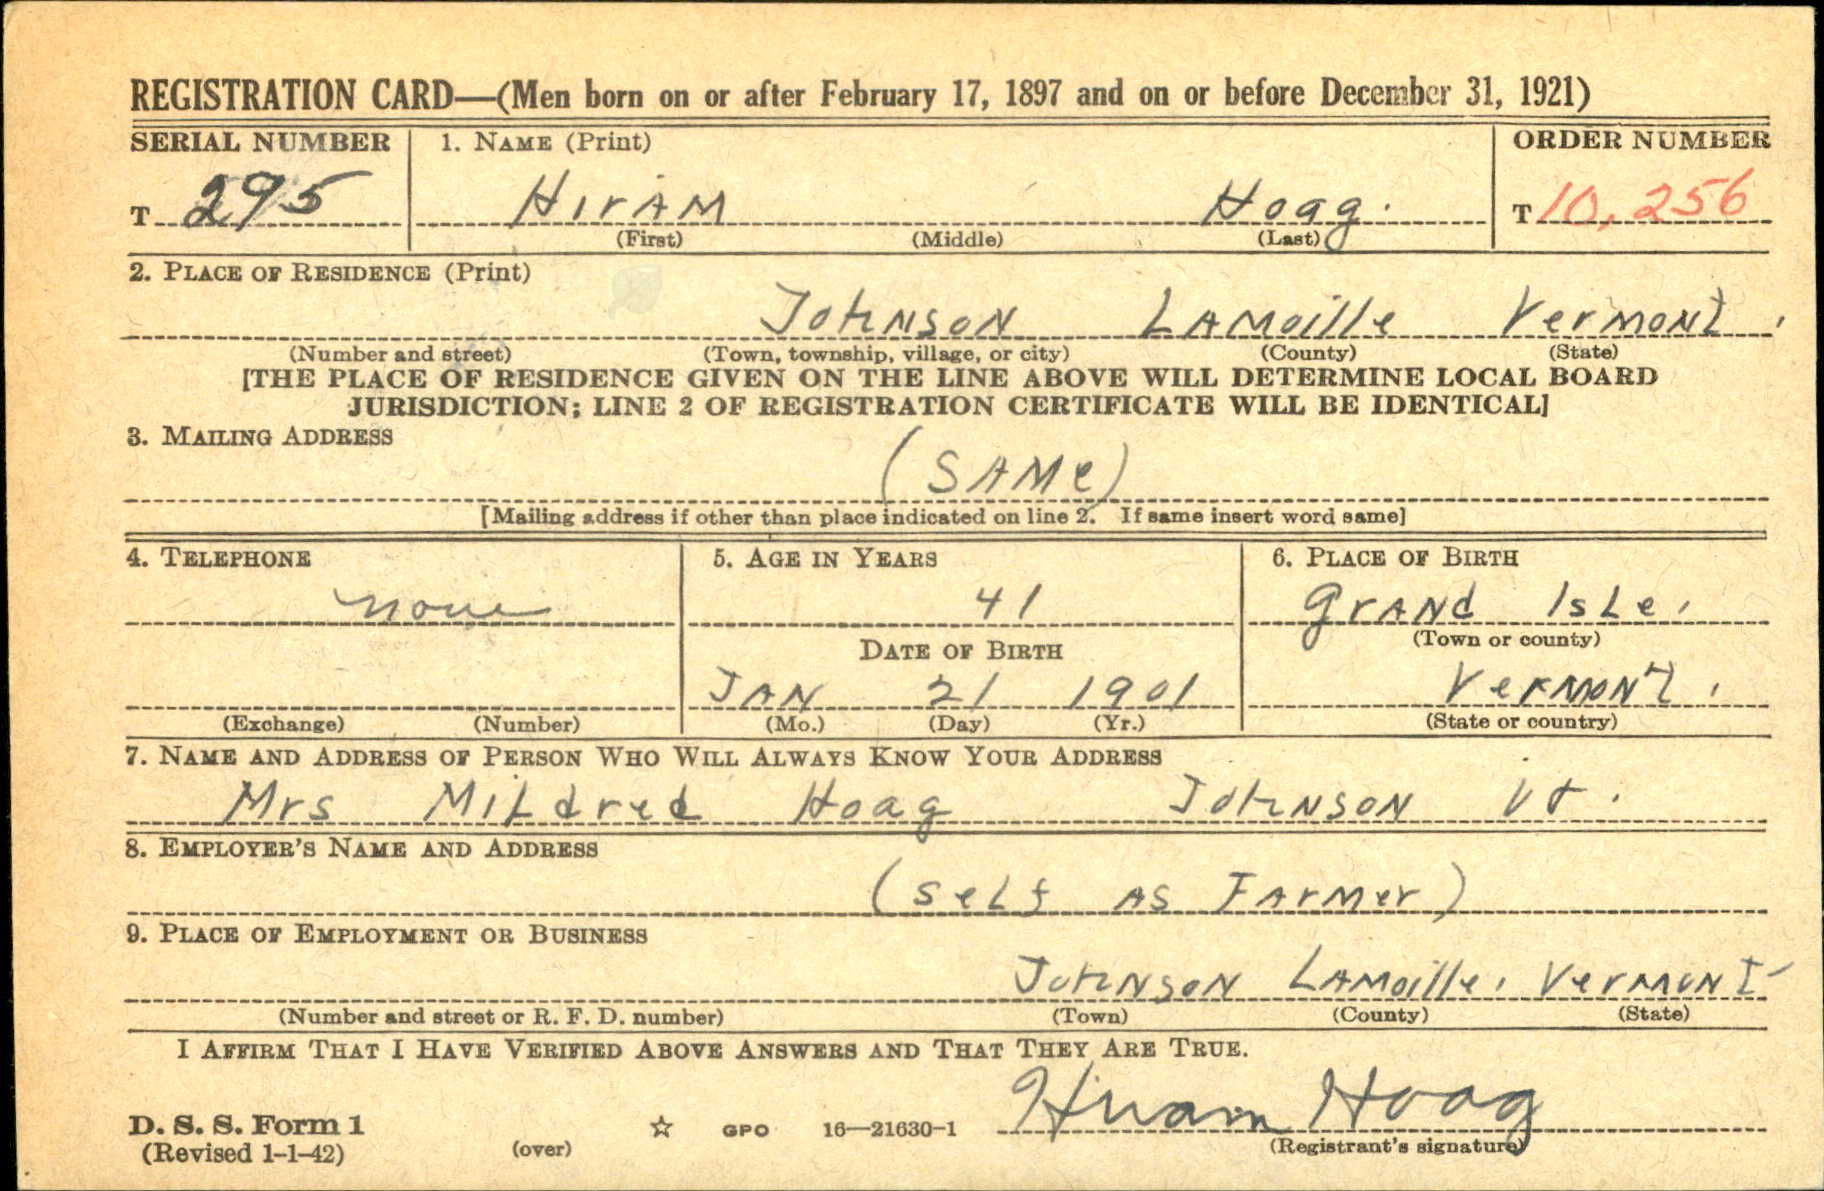 REGISTRATION CARD—(Men born on or after February 17, 1897 and on or before December 31, 1921)
SERIAL NUMBER 1. NAME (Print) ORDER NUMBER
T 295 HIrAM Hoag. T 10,256
(First) (Middle) (Last)
2. PLACE OF RESIDENCE (Print)
JOHNSON LAMoille VerMONT.
(Number and street) (Town, township, village, or city) (County) (State)
[THE PLACE OF RESIDENCE GIVEN ON THE LINE ABOVE WILL DETERMINE LOCAL BOARD
JURISDICTION; LINE 2 OF REGISTRATION CERTIFICATE WILL BE IDENTICAL]
3. MAILING ADDRESS
(SAMe)
[Mailing address if other than place indicated on line 2. If same insert word same]
4. TELEPHONE 5. AGE IN YEARS 6. PLACE OF BIRTH
none 41 GrANd IsLe.
(Town or county)
DATE OF BIRTH
JAN 21 1901 VerMONT.
(Exchange) (Number) (Mo.) (Day) (Yr.) (State or country)
7. NAME AND ADDRESS OF PERSON WHO WILL ALWAYS KNOW YOUR ADDRESS
Mrs MiLdred Hoag JOHNSON Vt.
8. EMPLOYER'S NAME AND ADDRESS
(seLf AS FArMer)
9. PLACE OF EMPLOYMENT OR BUSINESS
JOHNSON LAMoille. VerMONT
(Number and street or R. F. D. number) (Town) (County) (State)
I AFFIRM THAT I HAVE VERIFIED ABOVE ANSWERS AND THAT THEY ARE TRUE.
Hiram Hoag
D. S. S. Form 1 ☆ GPO 16—21630-1
(Revised 1-1-42) (over) (Registrant's signature)